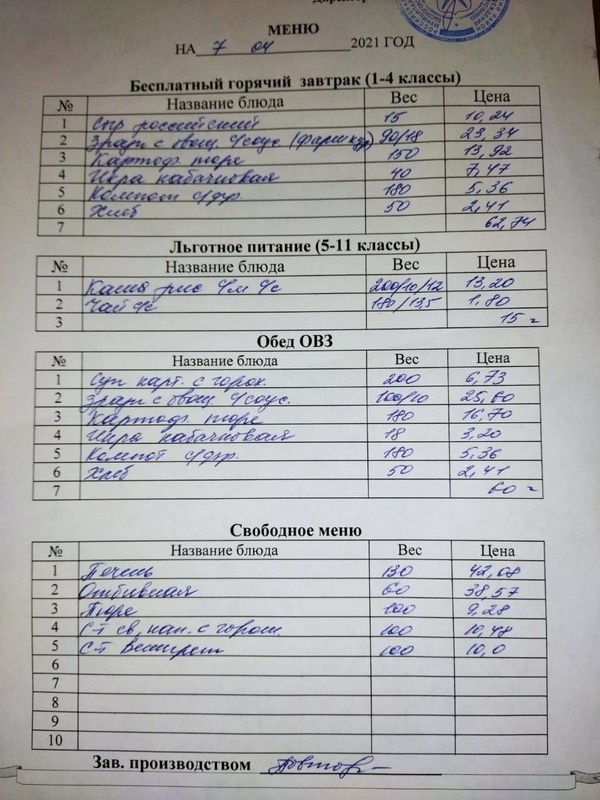 Директор
МЕНЮ
НА 7 04 2021 ГОД
Бесплатный горячий завтрак (1-4 классы)
№ Название блюда Вес Цена
1 Сыр российский 15 10,24
2 Зразы с овощ. ч/соус (фарш кур) 90/18 23,34
3 Картоф. пюре 150 13,92
4 Икра кабачковая 40 7,47
5 Компот с/фр. 180 5,36
6 Хлеб 50 2,41
7 62,74
Льготное питание (5-11 классы)
№ Название блюда Вес Цена
1 Каша рис ч/м ч/с 200/10/12 13,20
2 Чай ч/с 180/13,5 1,80
3 15 =
Обед ОВЗ
№ Название блюда Вес Цена
1 Суп карт. с горох. 200 6,73
2 Зразы с овощ. ч/соус. 100/10 25,60
3 Картоф. пюре 180 16,70
4 Икра кабачковая 18 3,20
5 Компот с/фр. 180 5,36
6 Хлеб 50 2,41
7 60 =
Свободное меню
№ Название блюда Вес Цена
1 Печень 130 42,08
2 Отбивная 60 38,57
3 Пюре 100 9.28
4 С-т св. кап. с горош. 100 10,48
5 С-т Винегрет 100 10,0
6
7
8
9
10
Зав. производством